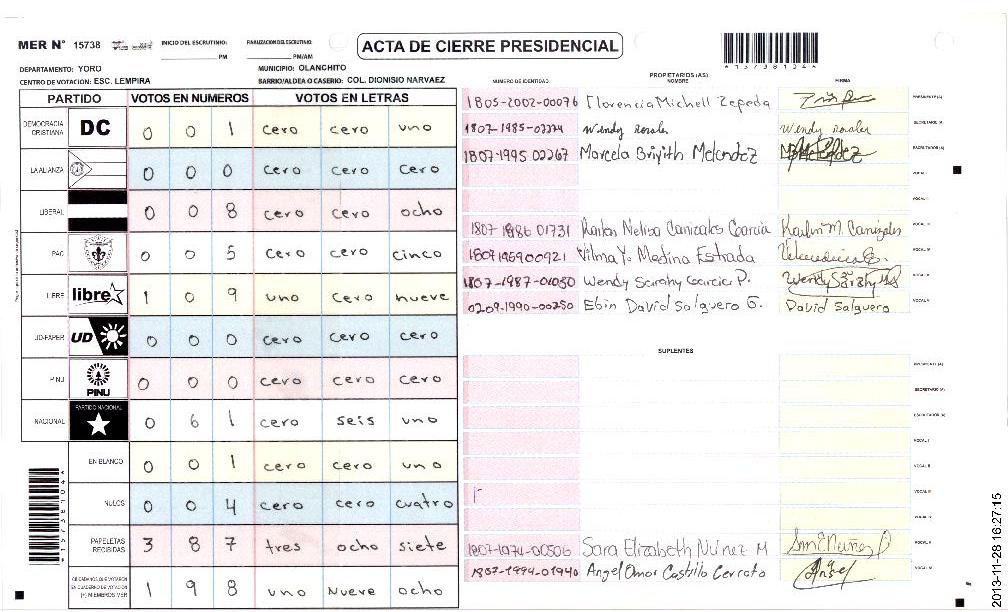 MER N° 15738
INICIO DEL ESCRUTINIO:
PM
FINALIZACION DEL ESCRUTINIO:
PM/AM
ACTA DE CIERRE PRESIDENCIAL
*1573810 4*
DEPARTAMENTO: YORO
MUNICIPIO: OLANCHITO
CENTRO DE VOTACION: ESC. LEMPIRA
BARRIO/ALDEA O CASERIO: COL. DIONISIO NARVAEZ
PARTIDO VOTOS EN NUMEROS VOTOS EN LETRAS
DEMOCRACIA CRISTIANA DC 0 0 1 cero cero uno
LA ALIANZA 0 0 0 cero cero cero
LIBERAL 0 0 8 cero cero ocho
PAC 0 0 5 cero cero cinco
LIBRE libre 1 0 9 uno cero nueve
UD-FAPER UD 0 0 0 cero cero cero
PINU PINU 0 0 0 cero cero cero
NACIONAL PARTIDO NACIONAL 0 6 1 cero seis uno
EN BLANCO 0 0 1 cero cero uno
NULOS 0 0 4 cero cero cuatro
PAPELETAS RECIBIDAS 3 8 7 tres ocho siete
CIUDADANOS QUE VOTARON EN CUADERNO DE VOTACION (+) MIEMBROS MER 1 9 8 uno Nueve ocho
PROPIETARIOS (AS)
NUMERO DE IDENTIDAD NOMBRE FIRMA
1805-2002-00076 Florencia Michell Zepeda PRESIDENTE (A)
1807-1985-02274 Wendy rosales Wendy rosales SECRETARIO (A)
Marcela Brigith Melendez ESCRUTADOR (A)
VOCAL I
VOCAL II
1807 1986 01731 Karlin Nelisa Canizales Garcia Karlin M. Canizales VOCAL III
Vilma Y. Medina Estrada VOCAL IV
1807-1987-01050 Wendy Sarahy Garcia P. Wendy Sarahy VOCAL V
0209-1990-00250 Ebin David Salguero G. David Salguero VOCAL VI
SUPLENTES
PRESIDENTE (A)
SECRETARIO (A)
ESCRUTADOR (A)
VOCAL I
VOCAL II
VOCAL III
VOCAL IV
1807-1974-00506 Sara Elizabeth Núnez M VOCAL V
1807-1994-01940 Angel Omar Castillo Cerrato Angel VOCAL VI
2013-11-28 16:27:15